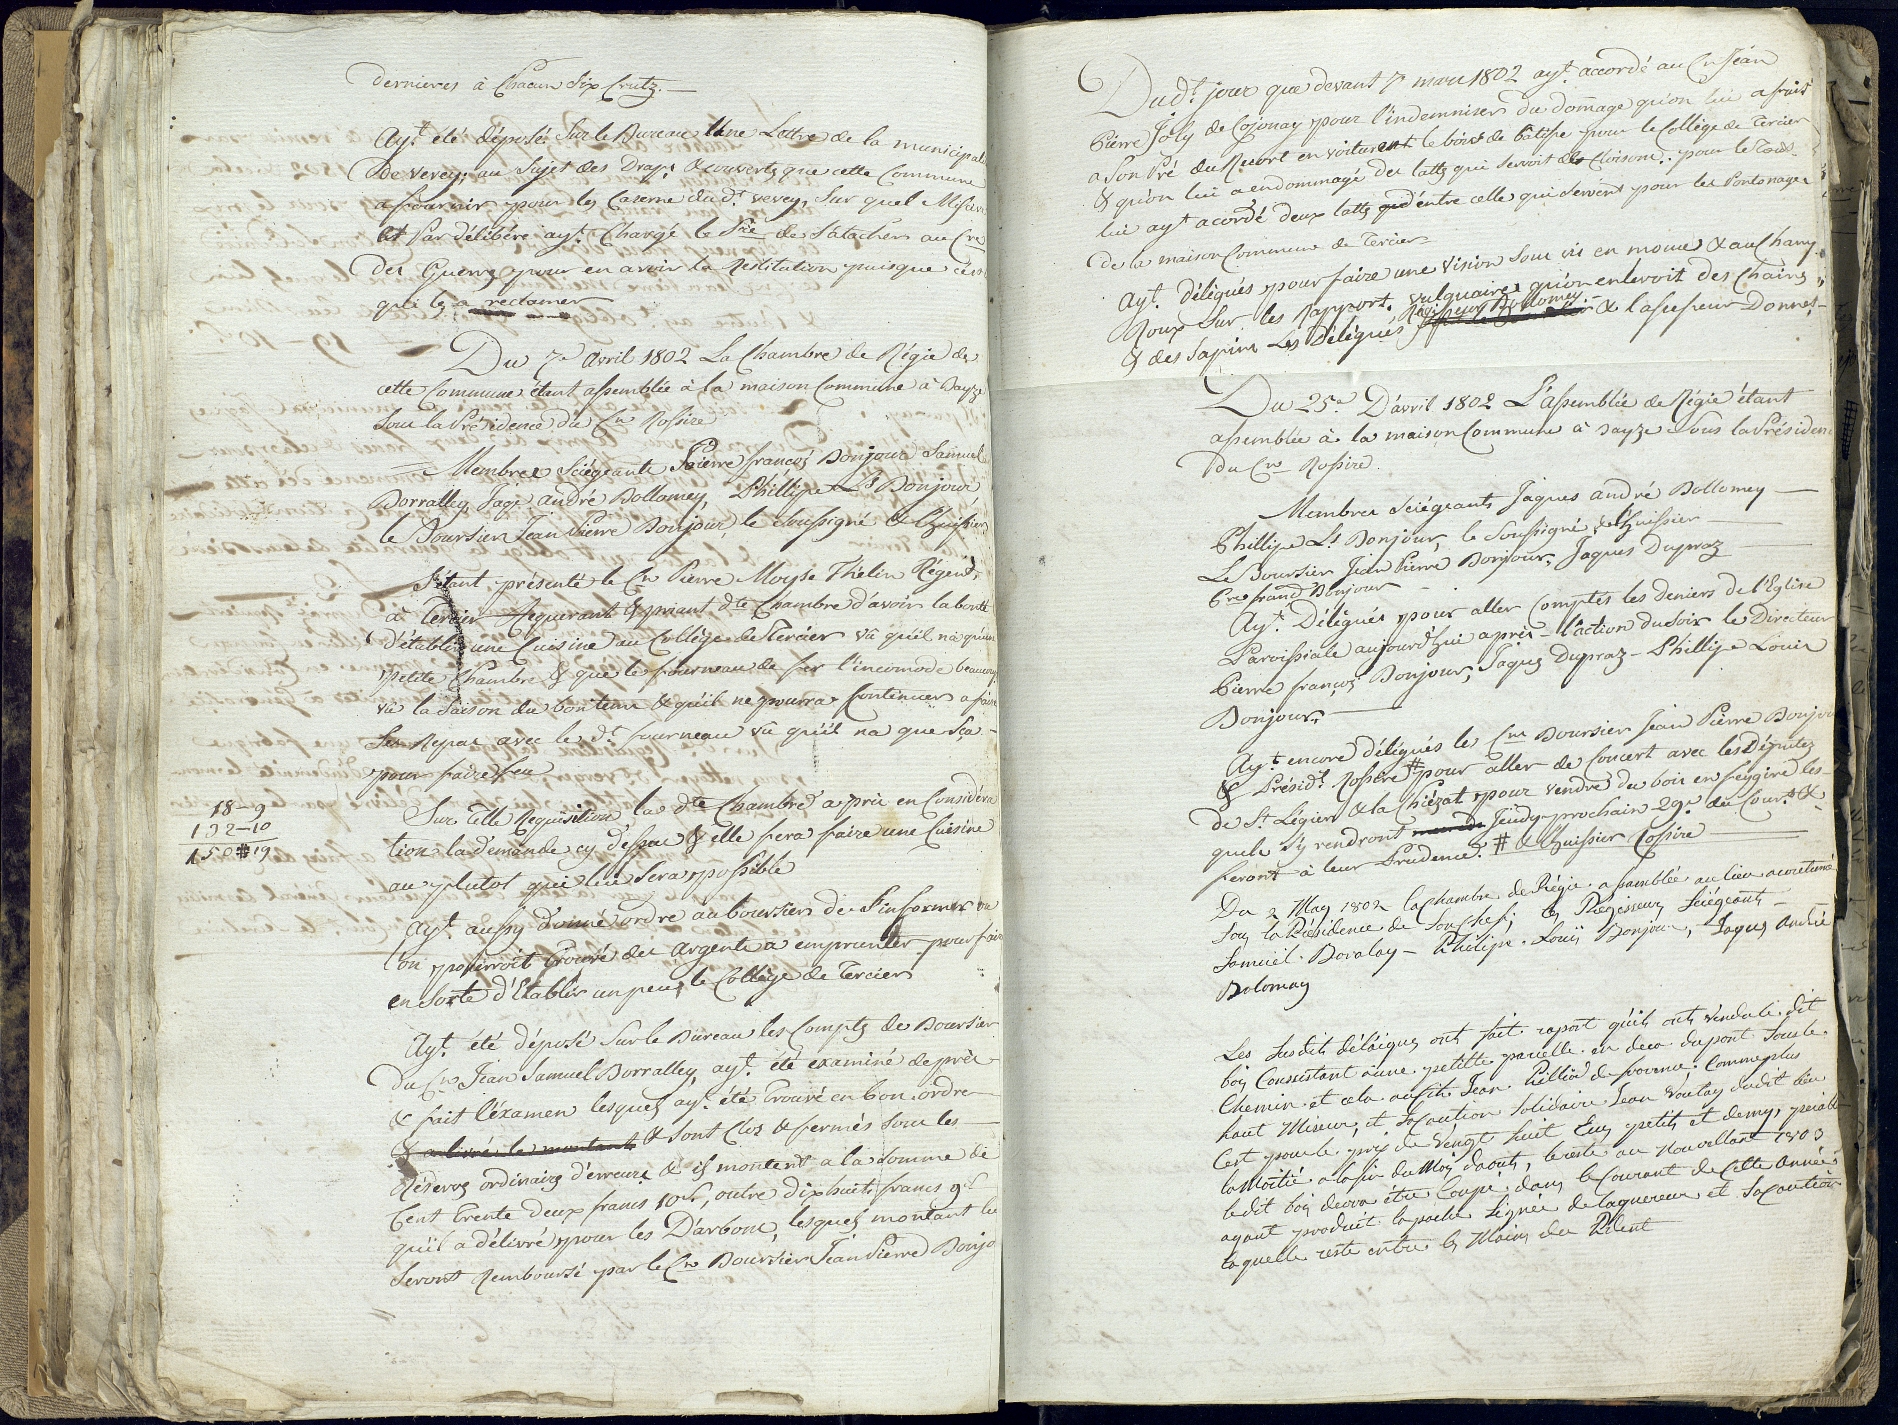 dernieres à Chacun Six Crutz.—
Ayt. été déposé Sur le Bureau Une Lettre de la municipal
de vevey, au Sujet des Draps & couverts que cette Commune
a fournir pour les Caserne du dt. vevey, Sur quel
Et Par délibéré ayt. Chargé le Sre de S'atacher au Cre
des Guerre pour en avoir la Restitution puisque
qui les a reclamer
Du 7e avril 1802 La Chambre de Régie de
cette Commune étant assemblée à la maison Commune à Bayze
Sous la Présidence du Cn Rossire
— Membres Sciégeants Pierre françoi Bonjour Samuel
Borralley, Jaqe andré Dollomey, Phillipe Ls Bonjour
le Boursier Jean Pierre Bonjour, le Soussigné & l'huissier
S'étant présenté le Cn Pierre Moyse Thélin Régent
à Tercier Requerant & priant dte Chambre d'avoir la bonté
d'établir une Cuisine au Collège de Tercier vû qu'il na qu'une
petite Chambre & que le fourneau de fer l'incomode beaucoup
vû la Saison du bon tems & qu'il ne pourra Continuer a faire
Ses Repas avec le dt. fourneau vû qu'il na que Sça
pour faire feu
18 - 9
132 - 10
150 # 19
Sur telle Requisition, la dte Chambre a prie en Considéra
tion la demande cy dessus & elle fera faire une Cuisine
au plutot qu'il lui Sera possible
Ayt. aussy donné ordre au boursier de S'informer ou
l'on pouirroit trouvé des Argents a emprunter pour faire
en Sorte d'Etablir un peu, le Collège de Tercier
Ayt. été déposé Sur le Bureau les Compts de Boursier
du Cn Jean Samuel Borralley, ayt. été examiné de près
& fait l'éxamen lesquels ayt. été Trouvé en bon ordre
& a livré le montant & Sont Clos & fermés Sous les
Réserves ordinaires d'erreurs & ils montent a la Somme de
Cent trente deux francs 10 s, outre dix huit francs 9 s
qu'il a délivré pour les D'arbonn, lesquels montant lu
Seront Remboursé par le Cn Boursier Jean Pierre Bonjo
Dudt. jour que devant 7e mars 1802 ayt. accordé au Cn Jean
Pierre Joly de Cojonay pour l'indemniser du domage qu'on lui a fait
a Son Pré du Recort en voiturant le bois de bâtisse pour le Collège de Tercier
& qu'on lui a endommagé des latts qui Servoit de Cloisons.. pour le tout
lui ayt. acordé deux latts qud'entre celle qui Servent pour les Pontonages
de la maison Commune de Tercier=
Ayt. Délégués pour faire une Vision Sous vis en moues & au Chamy
Roux Sur les Rapport. vulguaires qu'on enlevoit des Chaines
& des Sapins Les Délégués Régisseur Dollomey & l'assesseur Donnet
Du 25e. D'avril 1802 L'assemblée de Régie étant
assemblée à la maison Commune à Bayze Sous la Présiden
du Cn Rossire.
Membres Sciégeants Jaques andré Dollomey —
Phillipe Ls Bonjour, le Soussigné & l'huissier
Le Boursier Jean Pierre Bonjour, Jaques Dupraz
Pre frans Bonjour
Ayt. Délégués pour aller Comptés les deniers de l'Eglise
Paroissiale aujourd'hui après - l'action du Soir le Directeur
Pierre françoi Bonjour, Jaques Dupraz - Phillipe Louis
Bonjour, —
Ayt. encore délégués les Cns Boursier Jean Pierre Bonjou
& Présidt. Rossire # pour aller de Concert avec les Députez
de St. Légier & la Chiézat pour vendre du bois en feygire les
quels S'y rendront Jeudy prochain 29e du Court. &
feront à leur Prudence. # & l'huissier Rossire —
Du 2 May 1802 la chambre de Régie assamblée au lieu acoutumé
Sous la Présidence de Son Chef, les Régisseurs Siégeants —
Samuel Boralay - Philipe Louïs Bonjour, Jaques André
Dolomay
Les Susdits délégues ont fait raport qu'ils ont vendu le dit
bois Consistant à une petitte parcelle en deca du pont Sous le
Chemin et cela au Sit Jean Pilliod de fovence Comme plus
haut Miseur, et Sa caution Solidaire Jean Voutay dudit lieu
C'est pour le prix de vingt huit Ecus petits et demy, paiable
la Moitié a la fin du Mois d'aout, le reste au Nouvellant 1803
ledit bois devra étre Coupé dans le Courant de Cette Année
ayant produit la pache Signée de laquereur et Sa Caution
laquelle reste entre les Mains du Pdent